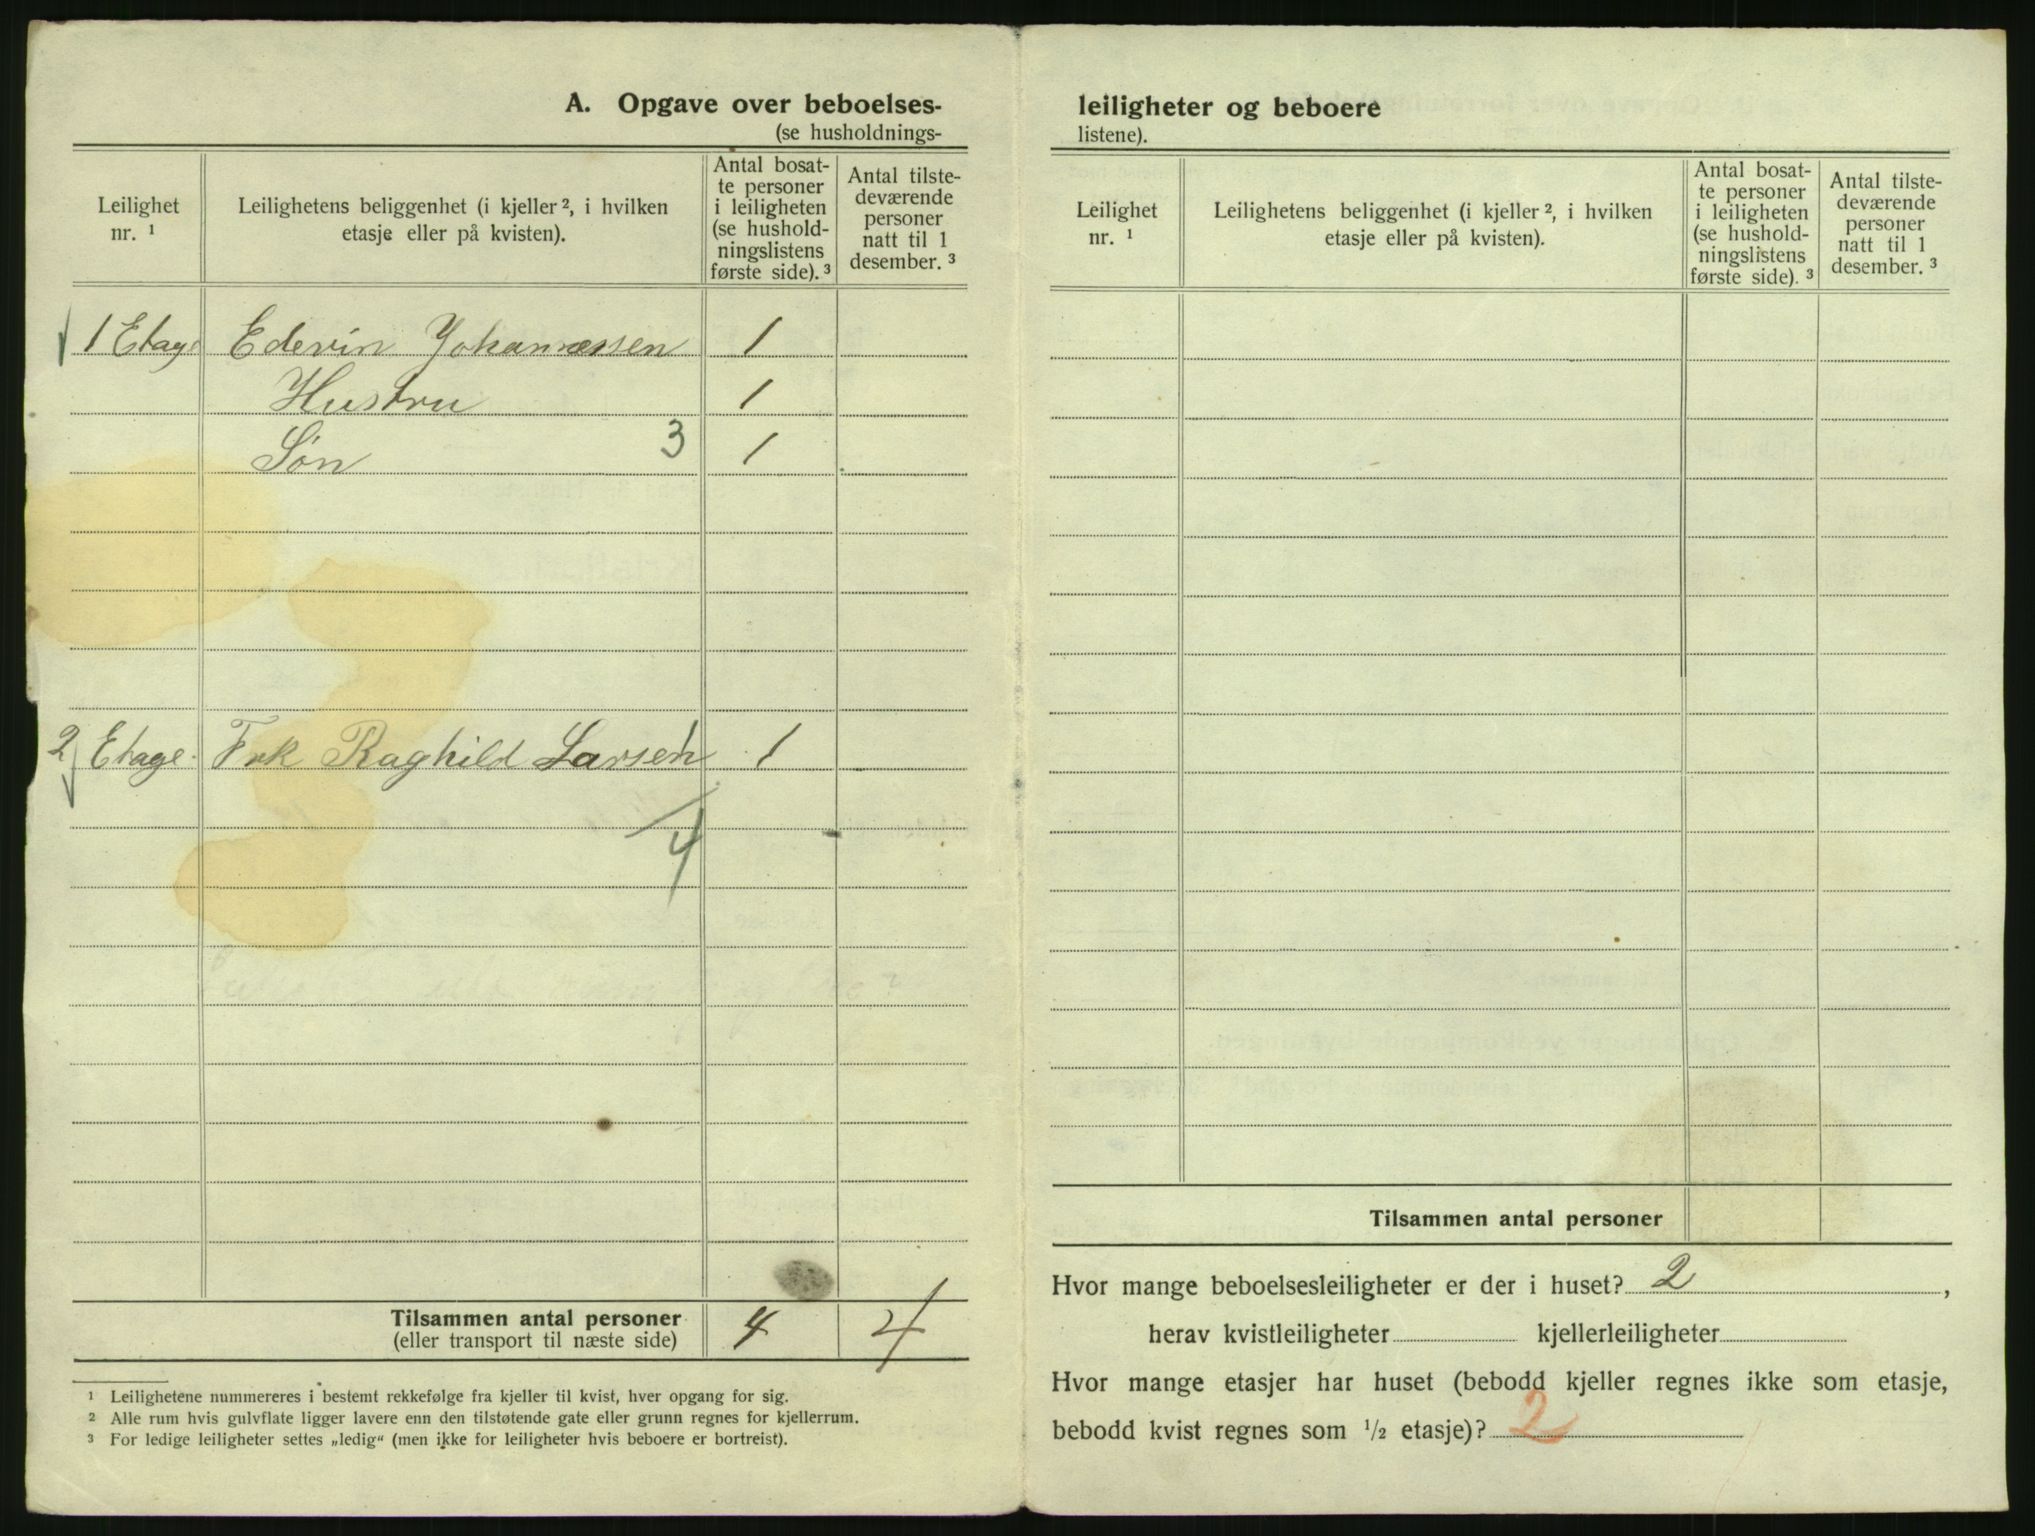 A. Opgave over beboelses-
(se husholdnings-
Leilighet nr. ¹
Leilighetens beliggenhet (i kjeller ², i hvilken etasje eller på kvisten).
Antal bosat-
te personer
i leiligheten
(se hushold-
ningslistens
første side). ³
Antal tilste-
deværende
personer
natt til 1
desember. ³
1 Etage Edevin Johannessen 1
Hustru 1
Søn 3 1
2 Etage. Frk Raghild Larsen 1 1
4
Tilsammen antal personer 4 4
(eller transport til næste side)
¹ Leilighetene nummereres i bestemt rekkefølge fra kjeller til kvist, hver opgang for sig.
² Alle rum hvis gulvflate ligger lavere enn den tilstøtende gate eller grunn regnes for kjellerrum.
³ For ledige leiligheter settes „ledig“ (men ikke for leiligheter hvis beboere er bortreist).
leiligheter og beboere
listene).
Leilighet nr. ¹
Leilighetens beliggenhet (i kjeller ², i hvilken etasje eller på kvisten).
Antal bosat-
te personer
i leiligheten
(se hushold-
ningslistens
første side). ³
Antal tilste-
deværende
personer
natt til 1
desember. ³
Tilsammen antal personer
Hvor mange beboelsesleiligheter er der i huset? 2 ,
herav kvistleiligheter kjellerleiligheter
Hvor mange etasjer har huset (bebodd kjeller regnes ikke som etasje,
bebodd kvist regnes som ½ etasje)? 2